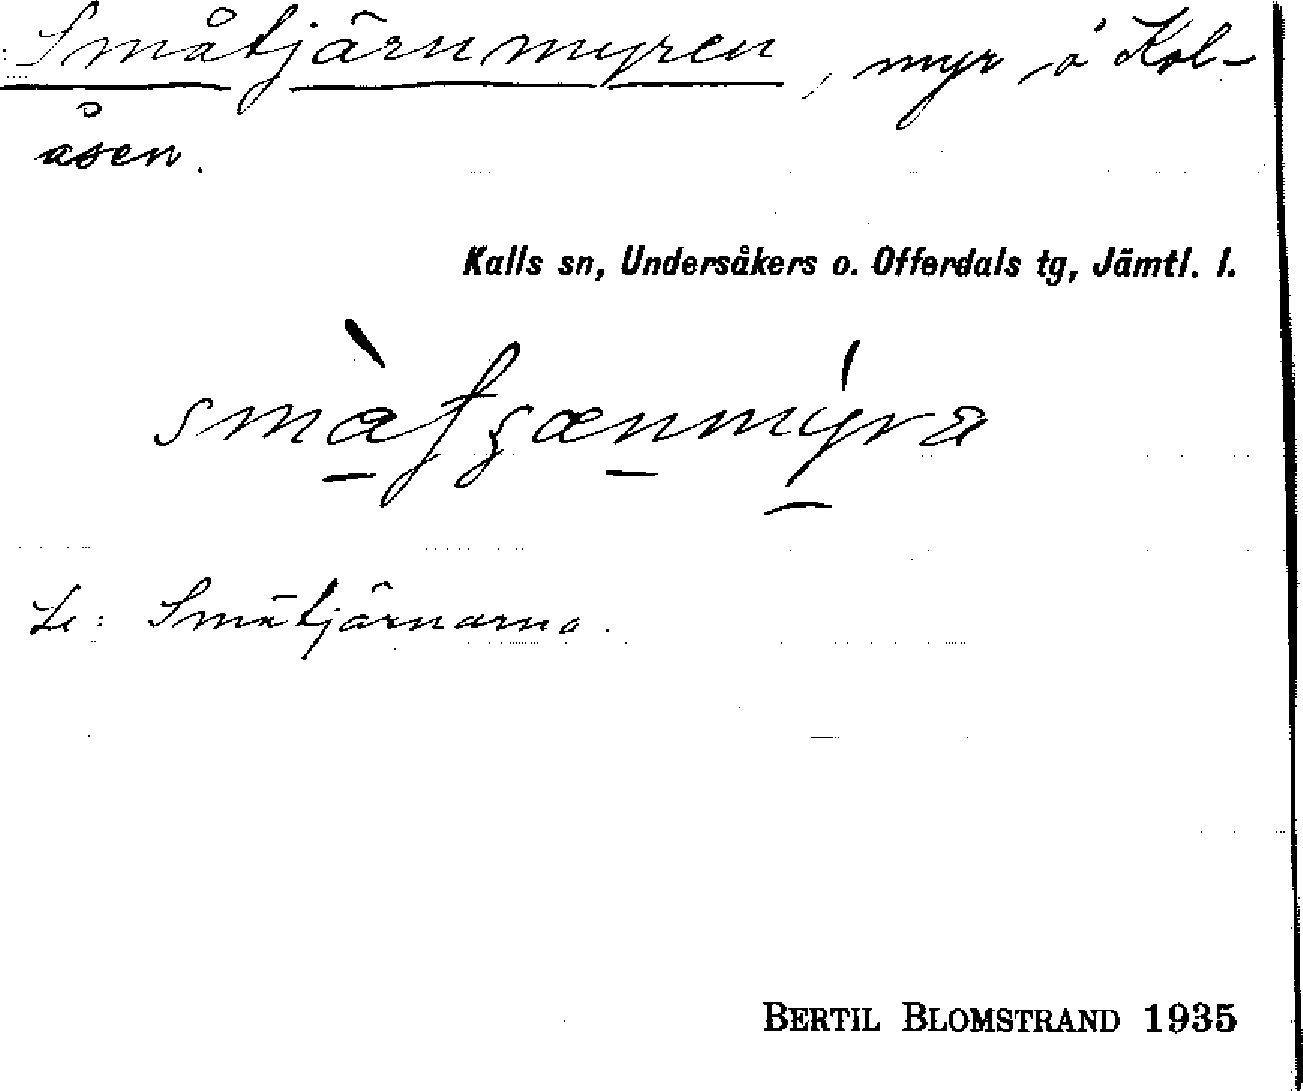 Småtjärnmyren, myr å Kol-
åsen.
Kalls sn, Undersåkers o. Offerdals tg, Jämtl. l.
Se: Småtjärnarna.
BERTIL BLOMSTRAND 1935